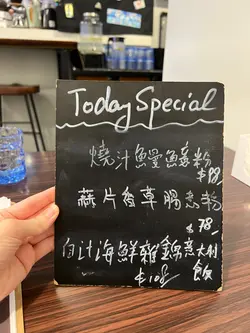 Today Special
燒汁鰻魚意粉
$98
蒜片香草腸意粉
$78
白汁海鮮雜錦意大利
飯
$108